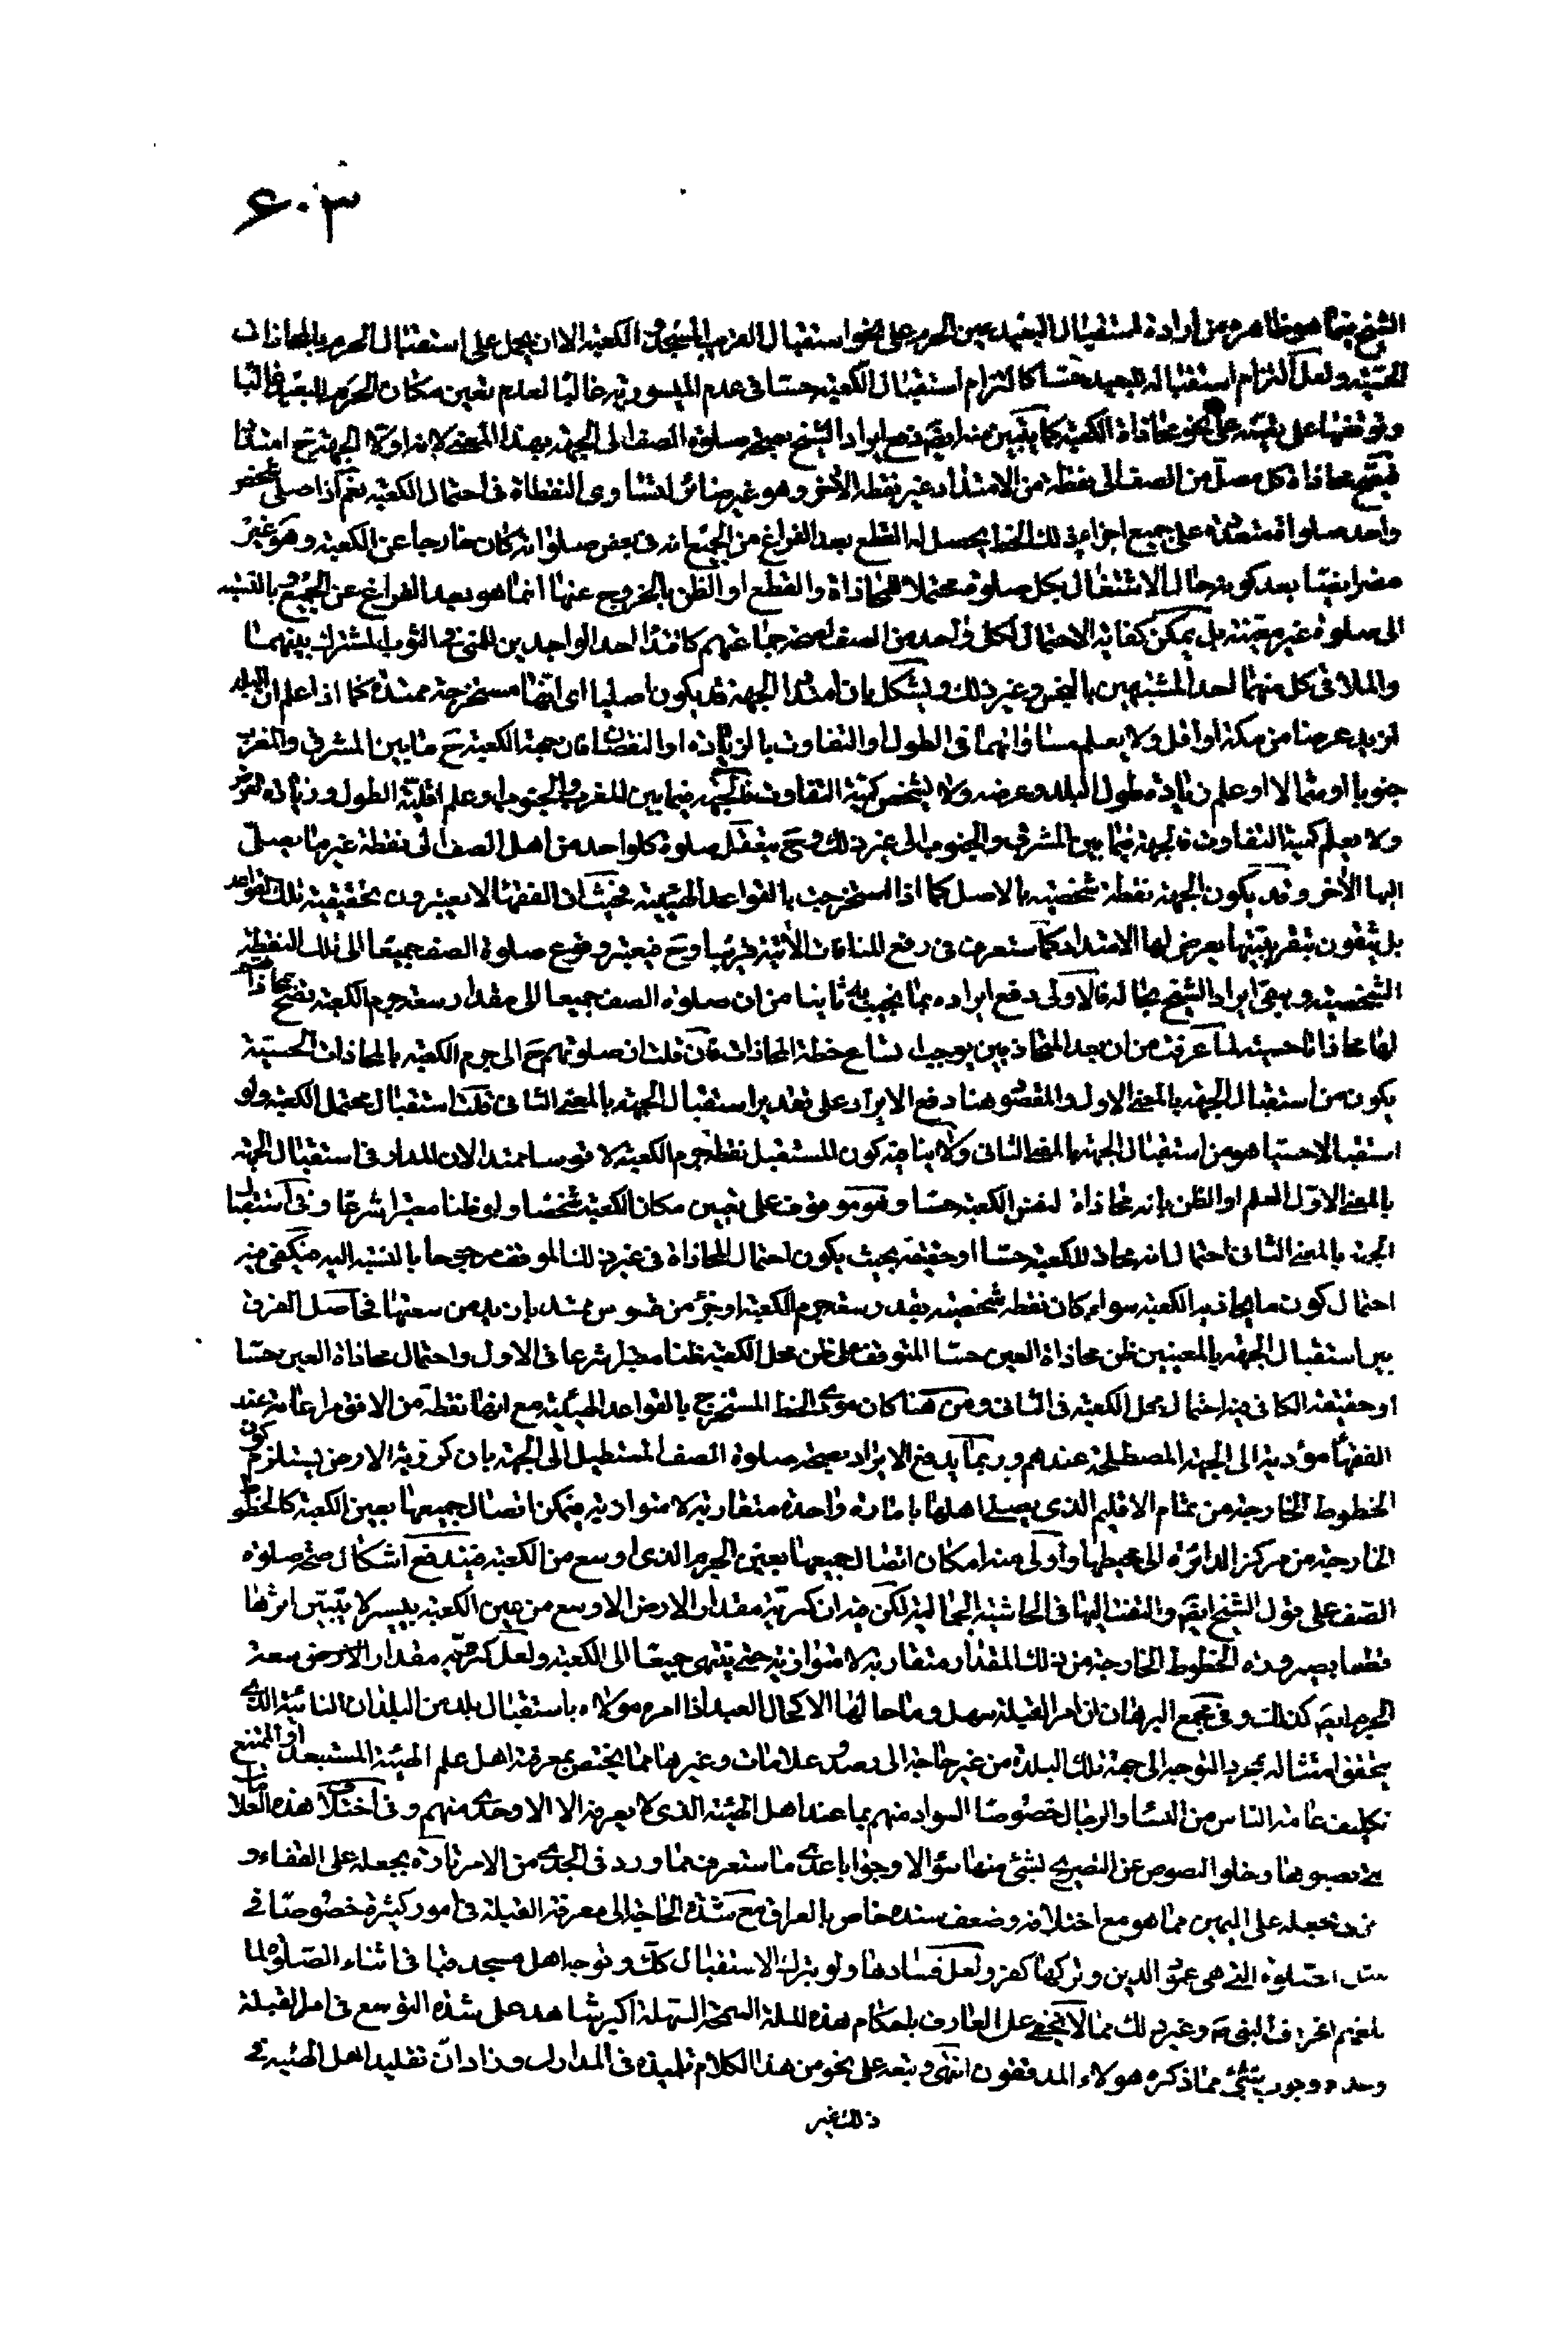 ٦٠٣
الشيخ فيما هو ظاهره من ارادة استقبال البعيد عين الحرم على نحو استقبال القريب المسجد والكعبة الا ان يحمل على استقبال الحرم بالمحاذات
الحسية ولعل التزام استقباله للبعيد حسا كالتزام استقبال الكعبة حسا في عدم الميسورية غالبا لعدم تعين مكان الحرم للبعيد غالبا
وتوقفها على تعينه على نحو محاذاة الكعبة كما يتبين منه ايضا فدفع ايراد الشيخ بصحة صلوة الصف الى الجهة بهذا المعنى لانه اولا الجهة ح امتدادا
فيقع محاذاة كل مصل من الصف الى نقطة من الامتداد غير نقطة الاخر وهو غير ضائر لتساوى النقطاة في احتمال الكعبة نعم اذا صلى شخص
واحد صلواة متعددة على جميع اجزاء ذلك الخط يحصل له القطع بعد الفراغ من الجميع انه في بعض صلواته كان خارجا عن الكعبة وهو غير
مضر ايضا بعد كونه حال الاشتغال بكل صلوة محتملا للمحاذاة والقطع او الظن بالخروج عنها انما هو بعد الفراغ عن الجميع بالنسبة
الى صلوة غير معينة بل يمكن كفاية الاحتمال لكل واحد من الصف كاقتداء احد الواجدين للمني في الثوب المشترك بينهما
والملاقى كل منهما لحد المشتبهين بالنجس وغير ذلك ويشكل بان امتداد الجهة قد يكون اصليا اى انها مستخرجة ممتدة كما اذا علم ان البلد
ازيد عرضا من مكة او اقل ولا يعلم مساواتهما في الطول او التفاوت بالزيادة او النقصان فان جهة الكعبة ح ما بين المشرق والمغرب
جنوبا او شمالا او علم زيادة طول البلد وعرضه ولا يشخص كمية التفاوت فالجهة فيما بين المغرب والجنوب او علم اقلية الطول وزيادة العرض
ولا يعلم كمية التفاوت فالجهة فيما بين المشرق والجنوب الى غير ذلك وح يتعقل صلوة كل واحد من اهل الصف الى نقطة غير ما يصلى
اليها الاخر وقد يكون الجهة نقطة شخصية بالاصل كما اذا استخرجت بالقواعد الهيئية فحيث ان الفقهاء لا يعتبرون تحقيقية تلك القواعد
بل يثقون بتقريبيتها يعرض لها الامتداد كما ستعرف في رفع المنافات الاتية قريبا وح فيعتبر وقوع صلوة الصف جميعا الى تلك النقطة
الشخصية ويبقى ايراد الشيخ بحاله فالاولى دفع ايراده بما نجيب به ثانيا من ان صلوة الصف جميعا الى مقدار سعة جرم الكعبة تصح محاذاتهم
لها محاذاتا حسية لما عرفت من ان بعد المتحاذيين يوجب اتساع خطة المحاذات فان قلت ان صلوتهم ح الى جرم الكعبة بالمحاذات الحسية
يكون من استقبال الجهة بالمعنى الاول والمقصود هنا دفع الايراد على تقدير استقبال الجهة بالمعنى الثاني قلت استقبال محتمل الكعبة ولو
استقبالا حسيا هو من استقبال الجهة بالمعنى الثانى ولا ينافيه كون المستقبل نقطة جرم الكعبة لا قوسا ممتدا لان المدار في استقبال الجهة
بالمعنى الاول العلم او الظن بانه محاذاة لنفس الكعبة حسا وهو موقوف على تعيين مكان الكعبة شخصا ولو ظنا معتبرا شرعا وفي استقبال
الجهة بالمعنى الثانى احتمال انه محاذ للكعبة حسا او حقيقة بحيث يكون احتمال المحاذاة في غير ذلك الموقف مرجوحا بالنسبة اليه فيكفى فيه
احتمال كون ما يحاذيه الكعبة سواء كان نقطة شخصية بقدر سعة جرم الكعبة او جزء من قوس ممتد بازيد من سعتها في اصل الفرق
بين استقبال الجهة بالمعنيين ظن محاذاة العين حسا المتوقف على ظن محل الكعبة ظنا معتبرا شرعا في الاول واحتمال محاذاة العين حسا
او حقيقة الكافى فيه احتمال محل الكعبة في الثانى ومن هنا كان مؤدى الخط المستخرج بالقواعد الهيئية مع انها نقطة من الافق مراعاته عند
الفقهاء مؤدية الى الجهة المصطلحة عندهم وربما يدفع الايراد بصحة صلوة الصف المستطيل الى الجهة بان كروية الارض يستلزم كون
الخطوط الخارجة من تمام الاقليم الذى يصلى اهلها بامارة واحدة متقاربة لا متوازية فيمكن اتصال جميعها بعين الكعبة كالخطوط
الخارجة من مركز الدائرة الى محيطها واولى منه امكان اتصال جميعها بعين الحرم الذى اوسع من الكعبة فيندفع اشكال صحة صلوة
الصف على قول الشيخ ايضا والتفت اليها في الحاشية الجمالية لكن فيه ان كروية مقدار الارض الاوسع من عين الكعبة بيسير لا يتبين اثرها
قطعا بصيرورة الخطوط الخارجة من ذلك المقدار متقاربة لا متوازية حتى ينتهى جميعا الى الكعبة ولعل كروية مقدار الارض سعة
الحرم ايضا كذلك وفى مجمع البرهان ان امر القبلة سهل وما حالها الا كحال العبد اذا امره مولاه باستقبال بلد من البلدان النائية الذى
يتحقق امتثاله بمجرد التوجه الى جهة تلك البلدة من غير حاجة الى رصد وعلامات وغيرها مما يختص بمعرفته اهل علم الهيئة المستبعد او الممتنع
تكليف عامة الناس من النساء والرجال خصوصا السواد منهم بما عند اهل الهيئة الذى لا يعرفه الا الاوحدى منهم وفى اختلاف هذه العلامات
التى نصبوها وخلو النصوص عن التصريح بشئ منها سؤالا وجوابا عدى ما ستعرف مما ورد في الجدى من الامر تارة بجعله على القفاء و
اخرى بجعله على اليمين مما هو مع اختلافه وضعف سنده خاص بالعراق مع شدة الحاجة الى معرفة القبلة في امور كثيرة خصوصا في
مثل الصلوة التى هى عمود الدين وتركها كفر ولعل فسادها ولو بترك الاستقبال كك وتوجه اهل مسجد قبا في اثناء الصلوة لما
بلغهم انحراف النبى وغير ذلك مما لا يخفى على العارف باحكام هذه الملة السمحة السهلة اكبر شاهد على شدة التوسع في امر القبلة
وعدم وجوب شئ مما ذكره هؤلاء المدققون انتهى وتبعه على نحو من هذا الكلام تلميذه في المدارك وزاد ان تقليد اهل الهيئة في
ذلك غير